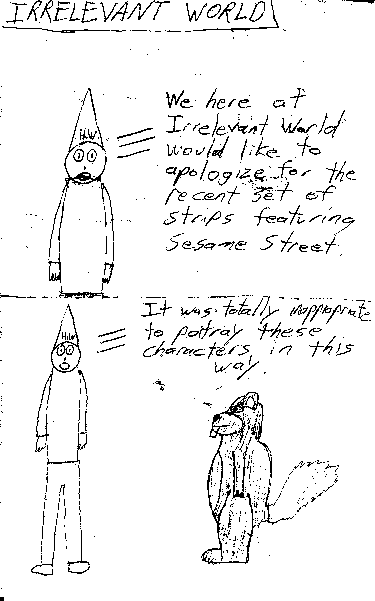 IRRELEVANT WORLD
We here at
Irrelevant World
would like to
apologize for the
recent set of
strips featuring
Sesame Street.
It was totally inappropriate
to potray these
characters in this
way.